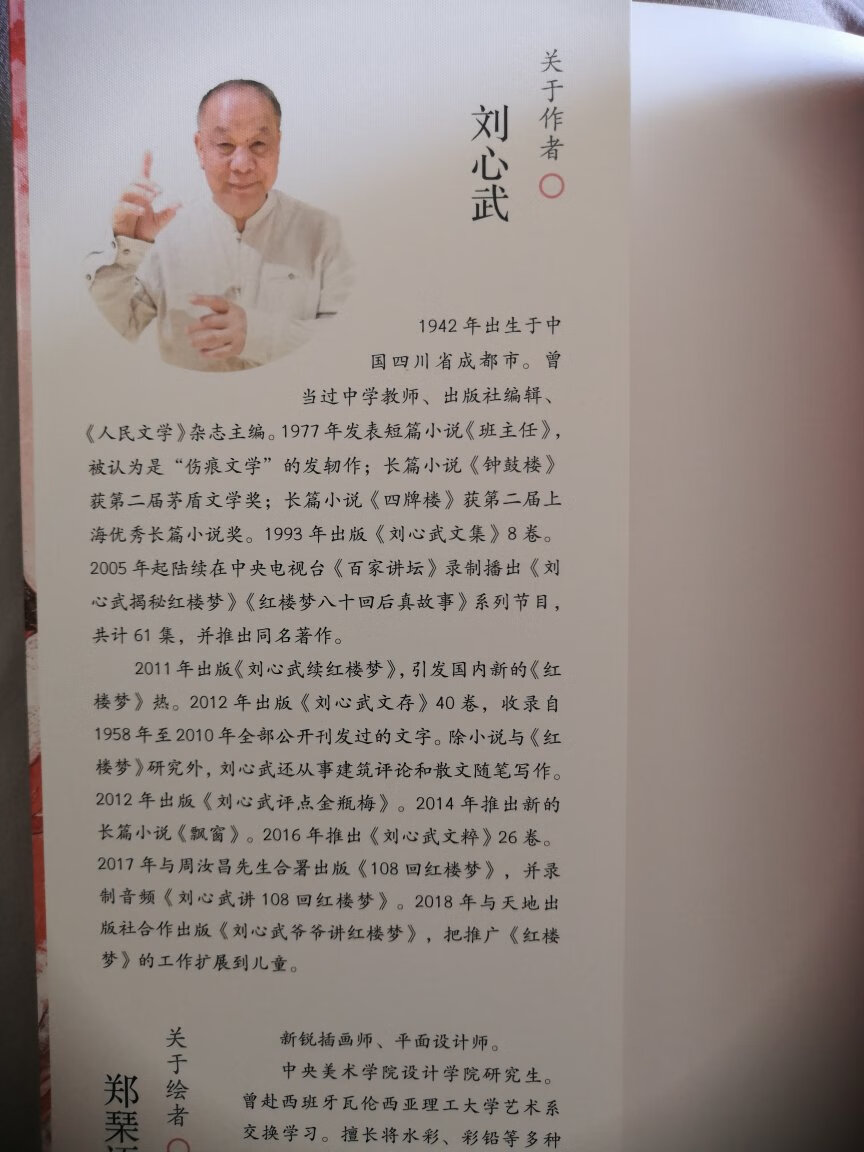 关于作者
刘心武
1942 年出生于中
国四川省成都市。曾
当过中学教师、出版社编辑、
《人民文学》杂志主编。1977 年发表短篇小说《班主任》，
被认为是“伤痕文学”的发轫作；长篇小说《钟鼓楼》
获第二届茅盾文学奖；长篇小说《四牌楼》获第二届上
海优秀长篇小说奖。1993 年出版《刘心武文集》8 卷。
2005 年起陆续在中央电视台《百家讲坛》录制播出《刘
心武揭秘红楼梦》《红楼梦八十回后真故事》系列节目，
共计 61 集，并推出同名著作。
2011 年出版《刘心武续红楼梦》，引发国内新的《红
楼梦》热。2012 年出版《刘心武文存》40 卷，收录自
1958 年至 2010 年全部公开刊发过的文字。除小说与《红
楼梦》研究外，刘心武还从事建筑评论和散文随笔写作。
2012 年出版《刘心武评点金瓶梅》。2014 年推出新的
长篇小说《飘窗》。2016 年推出《刘心武文粹》26 卷。
2017 年与周汝昌先生合署出版《108 回红楼梦》，并录
制音频《刘心武讲 108 回红楼梦》。2018 年与天地出
版社合作出版《刘心武爷爷讲红楼梦》，把推广《红楼
梦》的工作扩展到儿童。
关于绘者
郑琹
新锐插画师、平面设计师。
中央美术学院设计学院研究生。
曾赴西班牙瓦伦西亚理工大学艺术系
交换学习。擅长将水彩、彩铅等多种